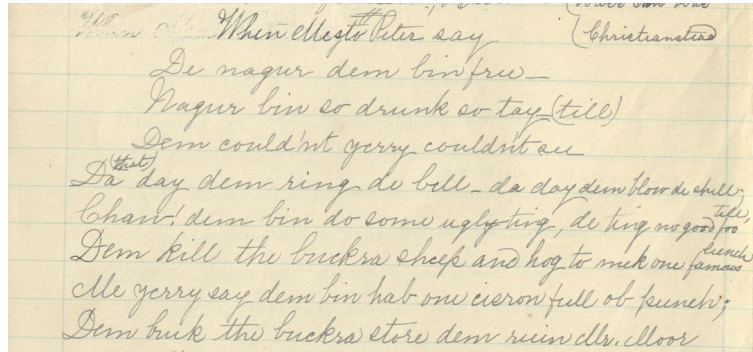 (Christianstead
When Mesto Peter say
De nagur dem bin free—
Nagur bin so drunk so tay (till)
Dem could'nt yerry couldn't see
(that)
Da day dem ring de bell— da day dem blow de shell
Chaw! dem bin do some ugly ting, de ting no good foo till,
Dem kill the buckra sheep and hog to mek one famous lunch
Me yerry say dem bin hab one cisron full ob punch;
Dem bruk the buckra store dem ruin Mr. Moor